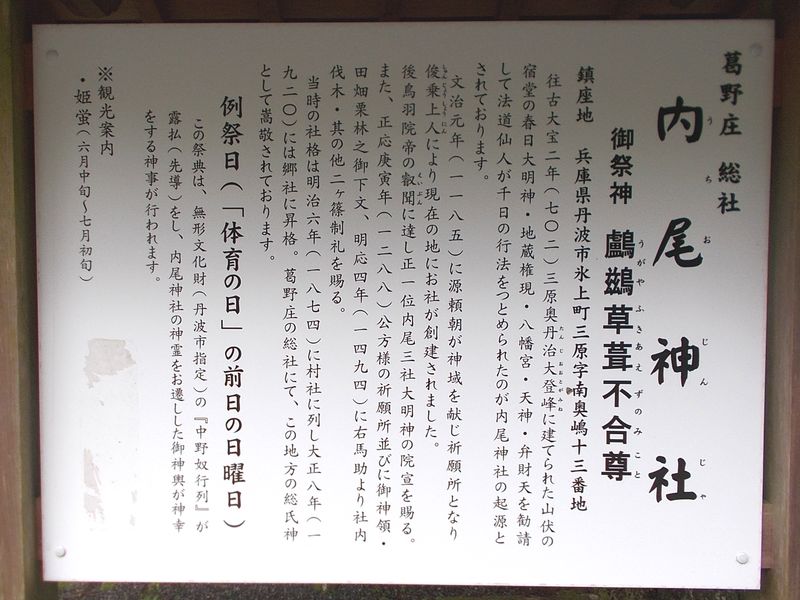 葛野庄 総社
内尾神社
うちおじんじゃ
御祭神 鸕鷀草葺不合尊
うがやふきあえずのみこと
鎮座地 兵庫県丹波市氷上町三原字南奥嶋十三番地
往古大宝二年(七〇二)三原奥丹治大登峰に建てられた山伏の
たんじおおとがみね
宿堂の春日大明神・地蔵権現・八幡宮・天神・弁財天を勧請
して法道仙人が千日の行法をつとめられたのが内尾神社の起源と
されております。
文治元年(一一八五)に源頼朝が神域を献じ祈願所となり
俊乗上人により現在の地にお社が創建されました。
しゅんじょうしょうにん
後鳥羽院帝の叡聞に達し正一位内尾三社大明神の院宣を賜る。
えいぶん
また、正応庚寅年(一二八八)公方様の祈願所並びに御神領・
田畑栗林之御下文、明応四年(一四九四)に右馬助より社内
伐木・其の他二ヶ篠制礼を賜る。
当時の社格は明治六年(一八七四)に村社に列し大正八年(一
九二〇)には郷社に昇格。葛野庄の総社にて、この地方の総氏神
として嵩敬されております。
例祭日(「体育の日」の前日の日曜日)
この祭典は、無形文化財(丹波市指定)の『中野奴行列』が
露払(先導)をし、内尾神社の神霊をお遷しした御神輿が神幸
をする神事が行われます。
※観光案内
・姫蛍(六月中旬〜七月初旬)